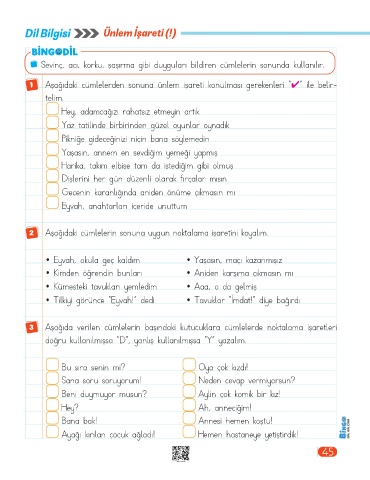 Dil Bilgisi >>> Ünlem İşareti (!)
BİNGODİL
Sevinç, acı, korku, şaşırma gibi duyguları bildiren cümlelerin sonunda kullanılır.
1 Aşağıdaki cümlelerden sonuna ünlem işareti konulması gerekenleri "✔" ile belir-
telim.
Hey, adamcağızı rahatsız etmeyin artık
Yaz tatilinde birbirinden güzel oyunlar oynadık
Pikniğe gideceğinizi niçin bana söylemedin
Yaşasın, annem en sevdiğim yemeği yapmış
Harika, takım elbise tam da istediğim gibi olmuş
Dişlerini her gün düzenli olarak fırçalar mısın
Gecenin karanlığında aniden önüme çıkmasın mı
Eyvah, anahtarları içeride unuttum
2 Aşağıdaki cümlelerin sonuna uygun noktalama işaretini koyalım.
• Eyvah, okula geç kaldım • Yaşasın, maçı kazanmışız
• Kimden öğrendin bunları • Aniden karşıma çıkmasın mı
• Kümesteki tavukları yemledim • Aaa, o da gelmiş
• Tilkiyi görünce "Eyvah!" dedi • Tavuklar "İmdat!" diye bağırdı
3 Aşağıda verilen cümlelerin başındaki kutucuklara cümlelerde noktalama işaretleri
doğru kullanılmışsa "D", yanlış kullanılmışsa "Y" yazalım.
Bu sıra senin mi? Oya çok kızdı!
Sana soru soruyorum! Neden cevap vermiyorsun?
Beni duymuyor musun? Aylin çok komik bir kız!
Hey? Ah, anneciğim!
Bana bak! Annesi hemen koştu!
Ayağı kırılan çocuk ağladı! Hemen hastaneye yetiştirdik!
Bingo
45